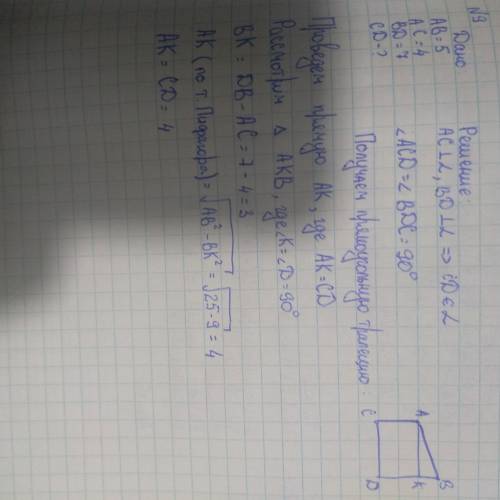 №9
Дано
AB=5
AC=4
BD=7
CD-?
Решение:
AC⊥L, BD⊥L ⇒ CD∈L
∠ACD=∠BDC=90°
Получаем прямоугольную трапецию:
A
B
C
K
D
Проведем прямую AK, где AK=CD
Рассмотрим △ AKB, где∠K=∠D=90°
BK = DB-AC=7-4=3
AK (по т. Пифагора)=√AB²-BK² =√25-9 = 4
AK = CD= 4